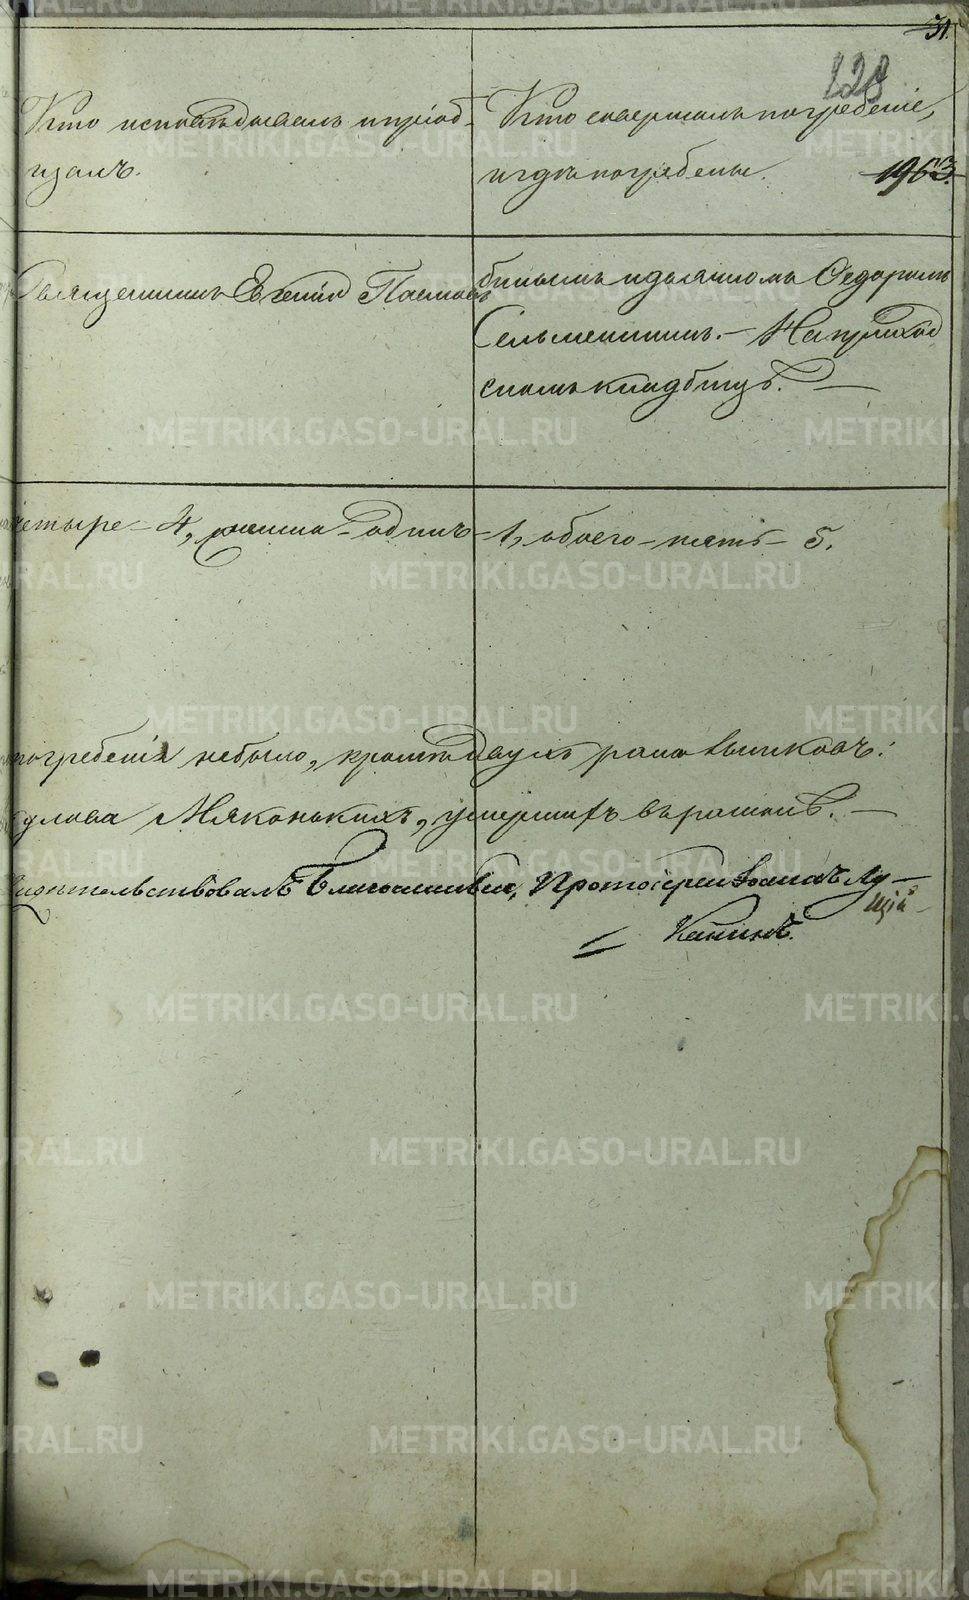 31.
128
Кто исповѣдывалъ и пріоб-
щалъ.
Кто совершалъ погребеніе,
и гдѣ погребены.
1963.
Священникъ Евгеній Поповъ
бнымъ и дьякономъ Ѳедоромъ
Сельменскимъ. — На приход
скомъ кладбищѣ. —
четыре — 4, женска — одинъ — 1, обоего — пять — 5.
погребенія небыло, кромѣ двухъ раскольниковъ:
Мяконькихъ, умершихъ въ расколѣ. —
Свидѣтельствовалъ Благочинный, Протоіерей Іоаннъ Лу-
канинъ.
METRIKI.GASO-URAL.RU